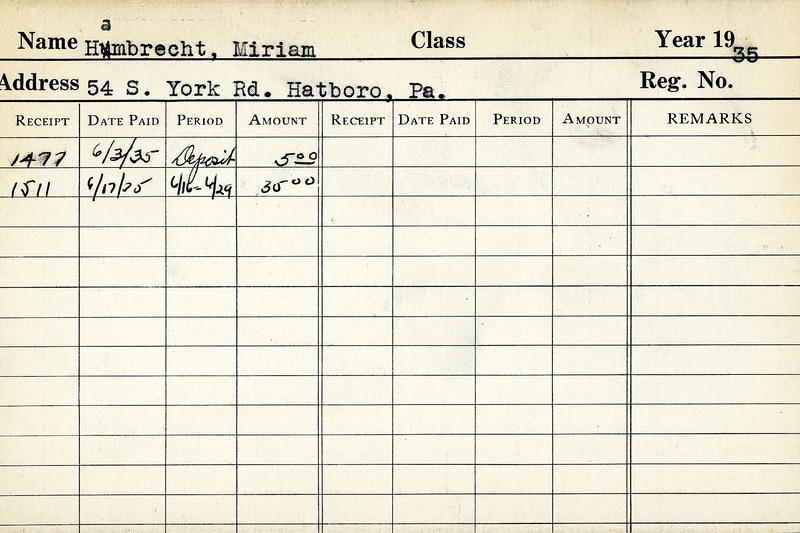 Name Hambrecht, Miriam Class Year 19 35
Address 54 S. York Rd. Hatboro, Pa. Reg. No.
RECEIPT DATE PAID PERIOD AMOUNT RECEIPT DATE PAID PERIOD AMOUNT REMARKS
1477 6/3/35 Deposit 5 00
1511 6/17/35 6/16-6/29 35 00